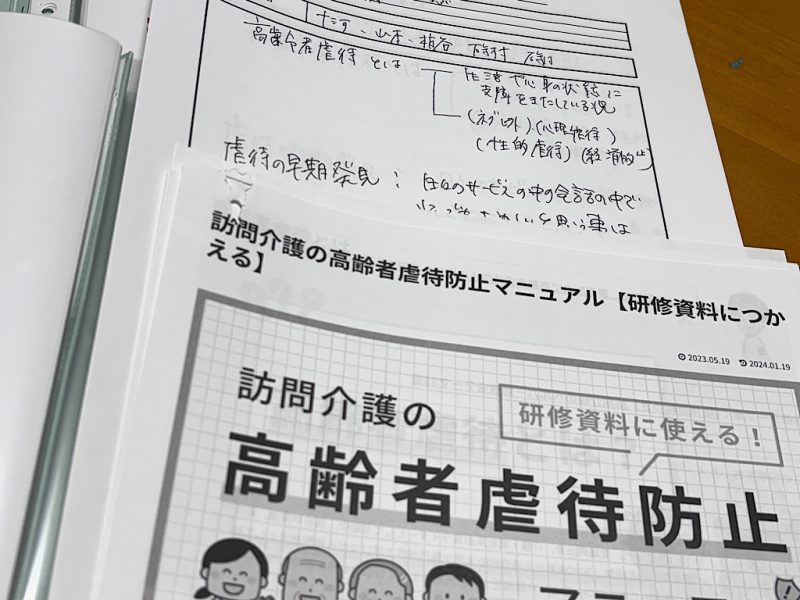 山本、植谷
高齢者虐待とは
生活や心身の状態に
支障をきたしている状況
(ネグレクト)・(心理虐待)
(性的虐待)(経済的
虐待の早期発見： 日々のサービスの中の会話の中で
と思う事は
訪問介護の高齢者虐待防止マニュアル【研修資料につか
える】
2023.05.19 2024.01.19
訪問介護の
研修資料に使える！
高齢者虐待防止